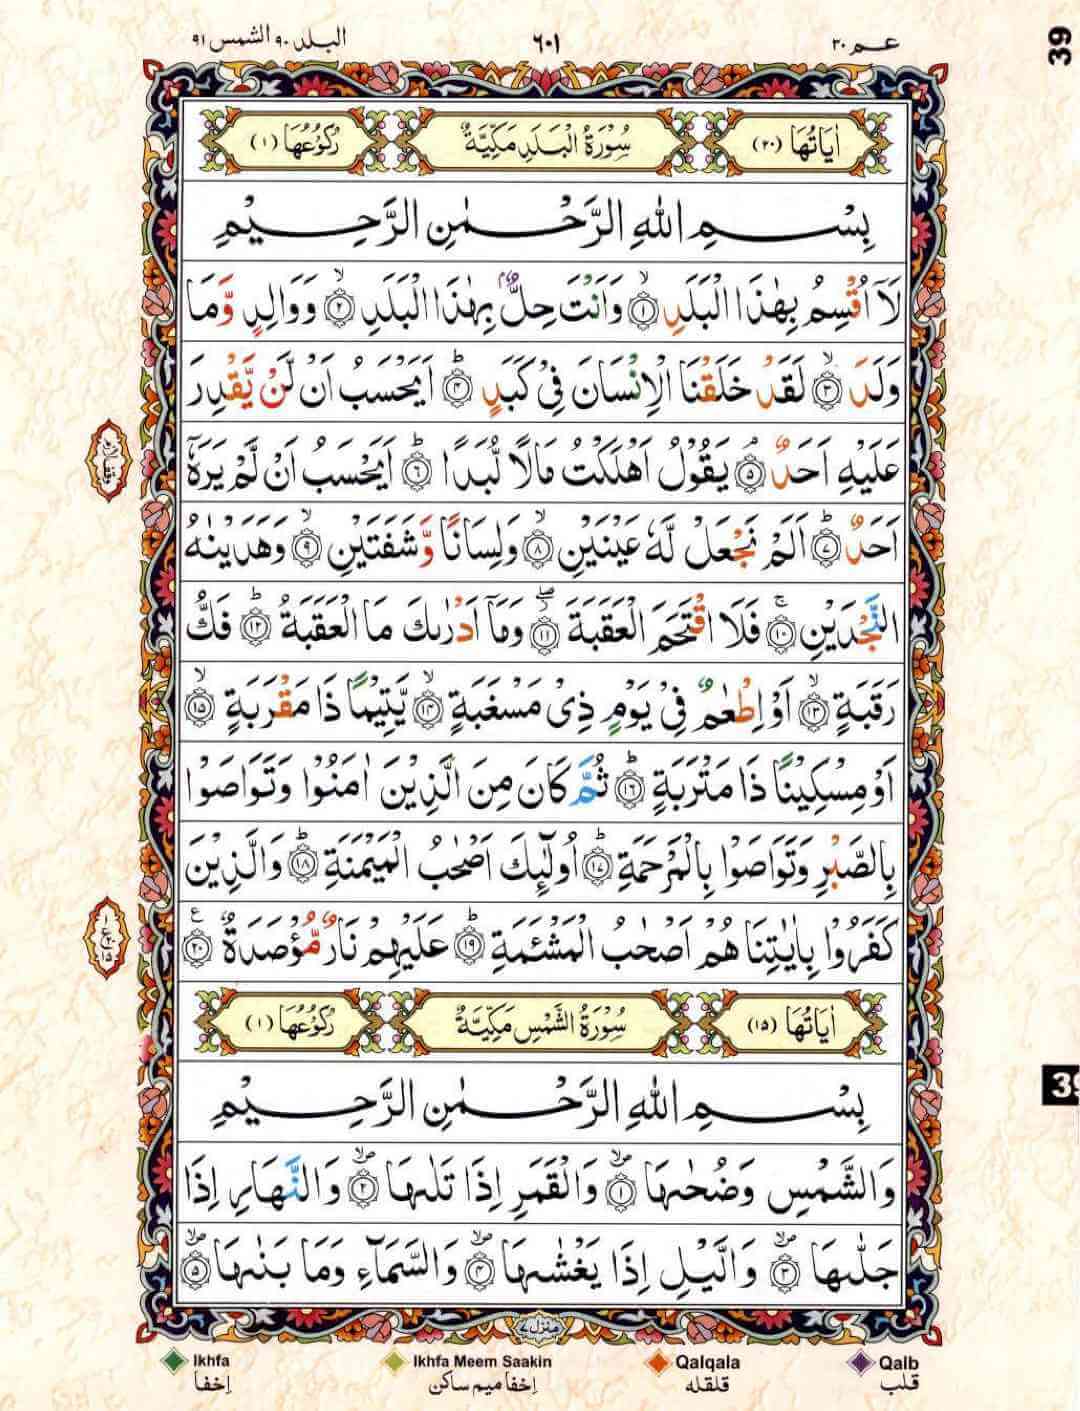 عـم ۳۰
٦۰۱
البلد ۹۰ الشمس ۹۱
39
اٰيَاتُهَا (۲۰)
سُوْرَةُ الْبَلَدِ مَكِّيَّةٌ
رُكُوْعُهَا (۱)
بِسْمِ اللّٰهِ الرَّحْمٰنِ الرَّحِيْمِ
لَاۤ اُقْسِمُ بِهٰذَا الْبَلَدِ ۙ‏﴿۱﴾ وَاَنْتَ حِلٌّۢ بِهٰذَا الْبَلَدِ ۙ‏﴿۲﴾ وَوَالِدٍ وَّمَا
وَلَدَ ۙ‏﴿۳﴾ لَقَدْ خَلَقْنَا الْاِنْسَانَ فِىْ كَبَدٍ ؕ‏﴿۴﴾ اَيَحْسَبُ اَنْ لَّنْ يَّقْدِرَ
عَلَيْهِ اَحَدٌ ۘ‏﴿۵﴾ يَقُوْلُ اَهْلَكْتُ مَالًا لُّبَدًا ؕ‏﴿۶﴾ اَيَحْسَبُ اَنْ لَّمْ يَرَهٗۤ
اَحَدٌ ؕ‏﴿۷﴾ اَلَمْ نَجْعَلْ لَّهٗ عَيْنَيْنِ ۙ‏﴿۸﴾ وَلِسَانًا وَّشَفَتَيْنِ ۙ‏﴿۹﴾ وَهَدَيْنٰهُ
النَّجْدَيْنِ ۚ‏﴿۱۰﴾ فَلَا اقْتَحَمَ الْعَقَبَةَ ۖ‏﴿۱۱﴾ وَمَاۤ اَدْرٰٮكَ مَا الْعَقَبَةُ ؕ‏﴿۱۲﴾ فَكُّ
رَقَبَةٍ ۙ‏﴿۱۳﴾ اَوْ اِطْعٰمٌ فِىْ يَوْمٍ ذِىْ مَسْغَبَةٍ ۙ‏﴿۱۴﴾ يَّتِيْمًا ذَا مَقْرَبَةٍ ۙ‏﴿۱۵﴾
اَوْ مِسْكِيْنًا ذَا مَتْرَبَةٍ ؕ‏﴿۱۶﴾ ثُمَّ كَانَ مِنَ الَّذِيْنَ اٰمَنُوْا وَتَوَاصَوْا
بِالصَّبْرِ وَتَوَاصَوْا بِالْمَرْحَمَةِ ؕ‏﴿۱۷﴾ اُولٰٓٮِٕكَ اَصْحٰبُ الْمَيْمَنَةِ ؕ‏﴿۱۸﴾ وَالَّذِيْنَ
كَفَرُوْا بِاٰيٰتِنَا هُمْ اَصْحٰبُ الْمَشْـَٔمَةِ ؕ‏﴿۱۹﴾ عَلَيْهِمْ نَارٌ مُّؤْصَدَةٌ ﴿۲۰﴾ ع
اٰيَاتُهَا (۱۵)
سُوْرَةُ الشَّمْسِ مَكِّيَّةٌ
رُكُوْعُهَا (۱)
بِسْمِ اللّٰهِ الرَّحْمٰنِ الرَّحِيْمِ
وَالشَّمْسِ وَضُحٰٮهَا ۙ‏﴿۱﴾ وَالْقَمَرِ اِذَا تَلٰٮهَا ۙ‏﴿۲﴾ وَالنَّهَارِ اِذَا
جَلّٰٮهَا ۙ‏﴿۳﴾ وَالَّيْلِ اِذَا يَغْشٰٮهَا ۙ‏﴿۴﴾ وَالسَّمَآءِ وَمَا بَنٰٮهَا ۙ‏﴿۵﴾
منزل ۷
Ikhfa
اِخفا
Ikhfa Meem Saakin
اِخفا ميم ساكن
Qalqala
قلقله
Qalb
قلب